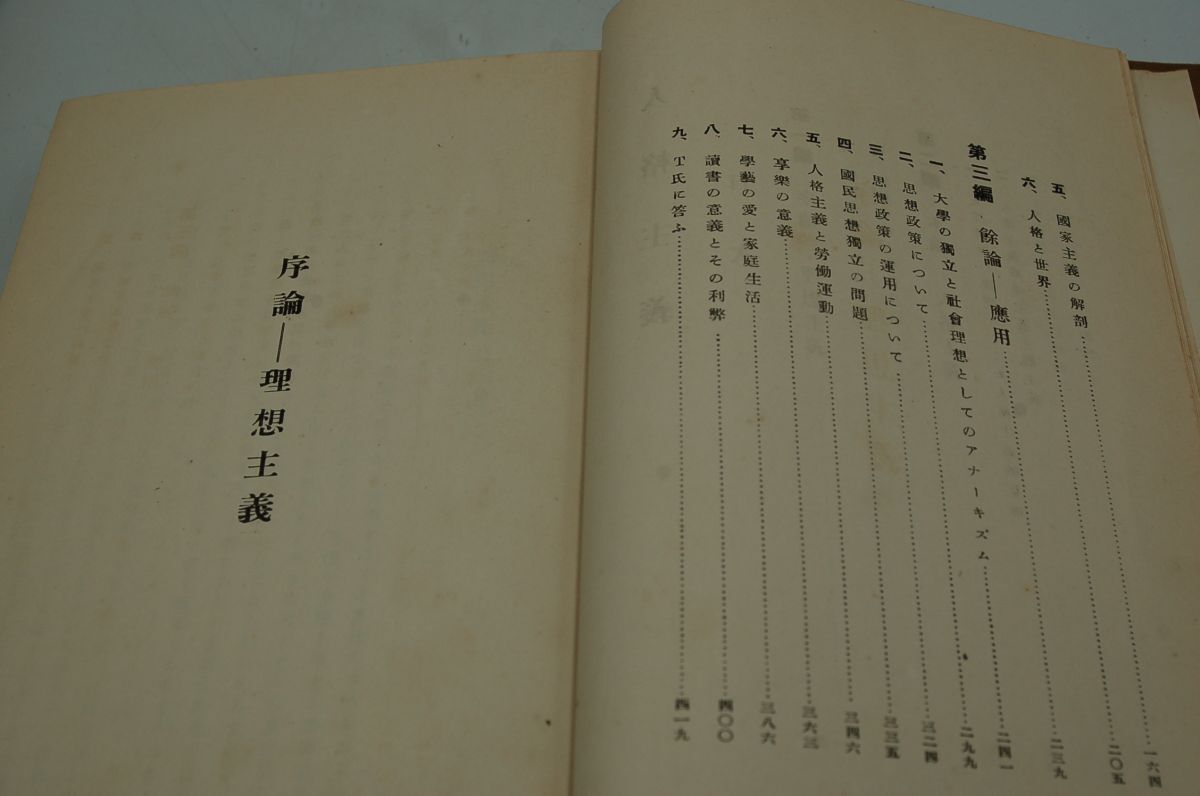 五、國家主義の解剖……一六四
六、人格と世界……二〇五
第三編 餘論――應用……二三九
一、大學の獨立と社會理想としてのアナーキズム……二四一
二、思想政策について……二九九
三、思想政策の運用について……三二四
四、國民思想獨立の問題……三三五
五、人格主義と勞働運動……三四六
六、享樂の意義……三六三
七、學藝の愛と家庭生活……三八六
八、讀書の意義とその利弊……四〇〇
九、T氏に答ふ……四一九
序論――理想主義